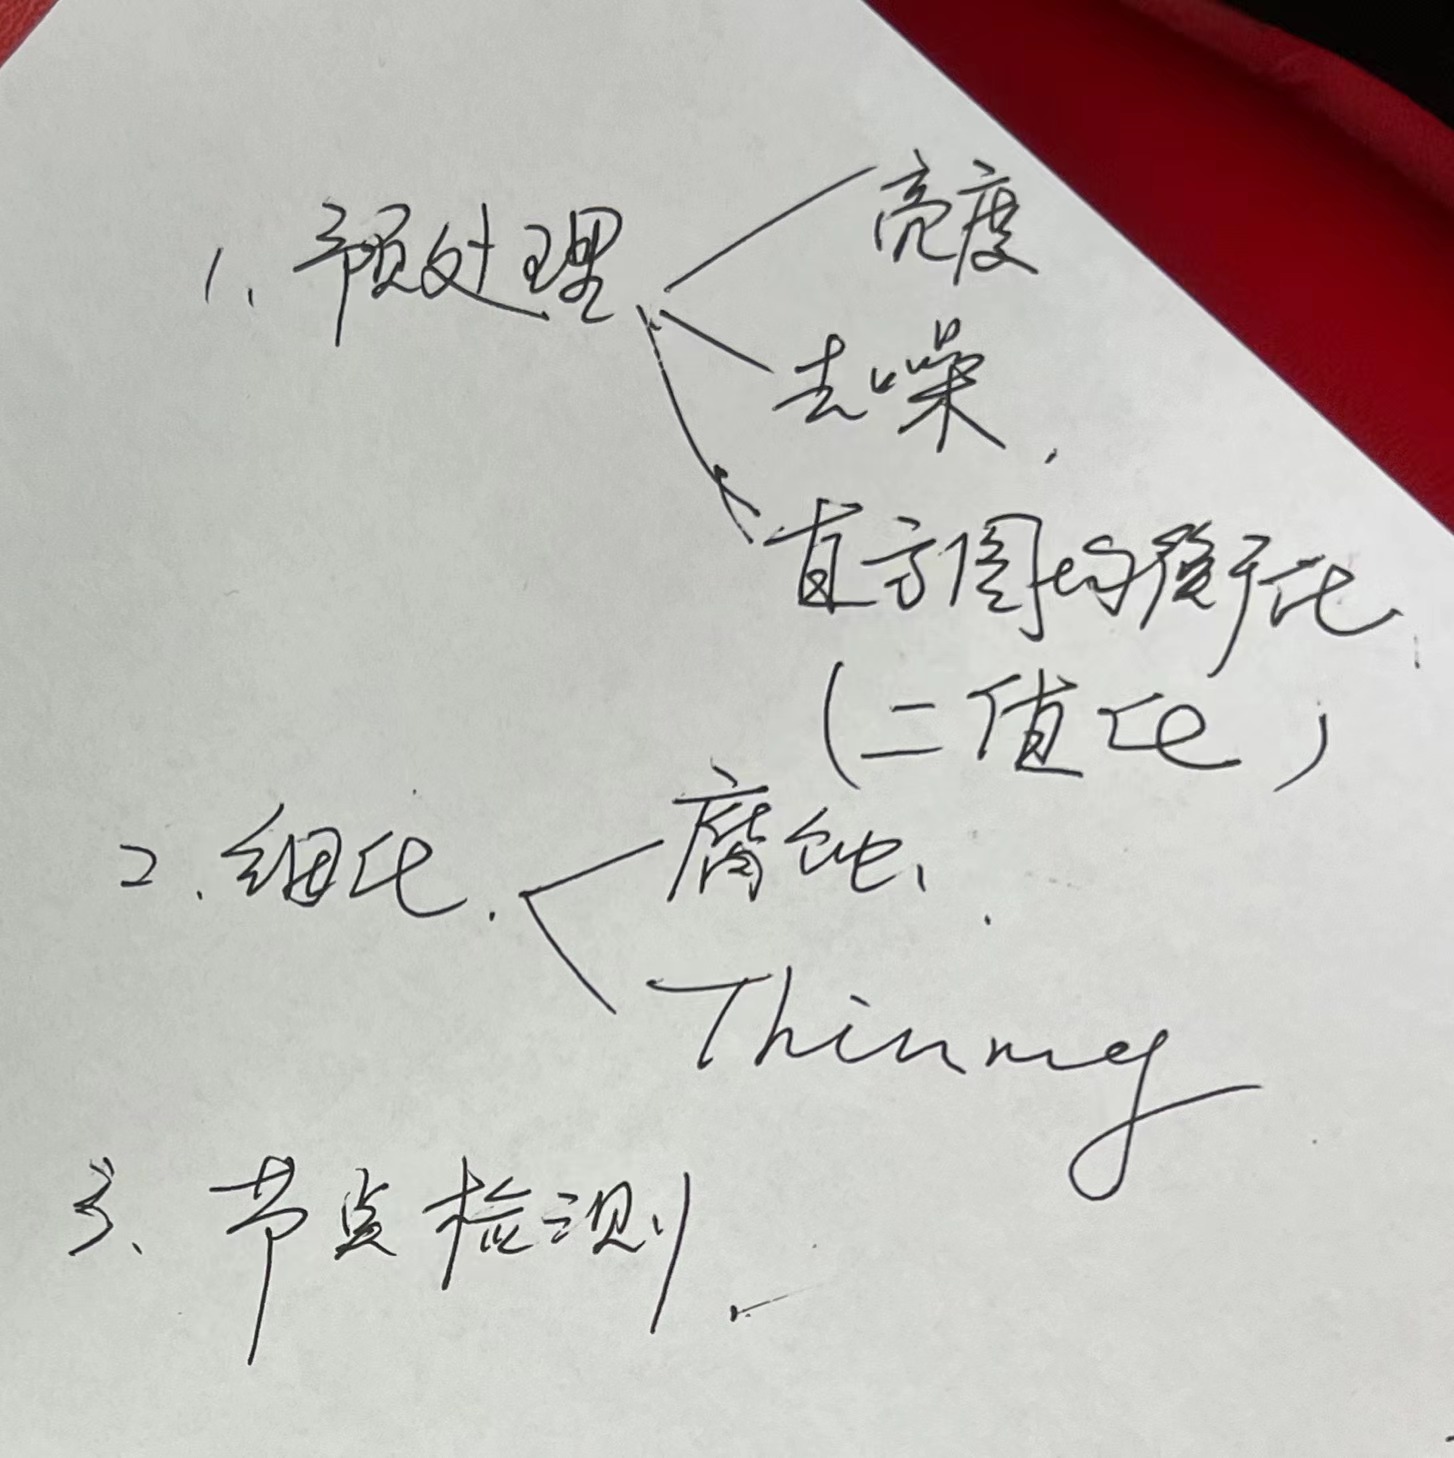 1. 预处理
亮度
去噪.
直方图均衡化.
(二值化)
2. 细化.
腐蚀、
Thinning
3、节点检测.